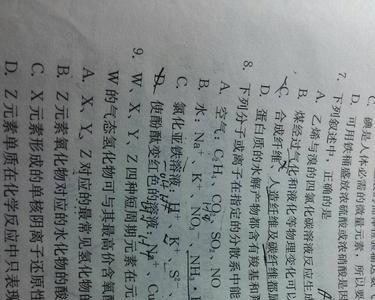 C. 碘是人体必需的微量元素，所以要
D. 可用铁桶盛放浓硫酸或浓硝酸是因
7. 下列叙述中，正确的是
A. 乙烯与溴的四氯化碳溶液反应生
B. 煤经过气化和液化等物理变化可
C. 合成纤维、人造纤维及碳纤维都属
D. 蛋白质的水解产物都含有羧基和
8. 下列分子或离子在指定的分散系中能
A. 空气：C₂H₄ CO₂ SO₂ NO
B. 水：Na⁺ K⁺ NO₃⁻ NH₃
C. 氯化亚铁溶液：H⁺ K⁺ S²⁻
D. 使酚酞变红色的溶液：
9. W、X、Y、Z四种短周期元素在元
W的气态氢化物可与其最高价含氧酸
A. X、Y、Z对应的最常见氢化物的
B. Z元素氧化物对应的水化物的酸
C. X元素形成的单核阴离子还原性
D. Z元素单质在化学反应中只表现